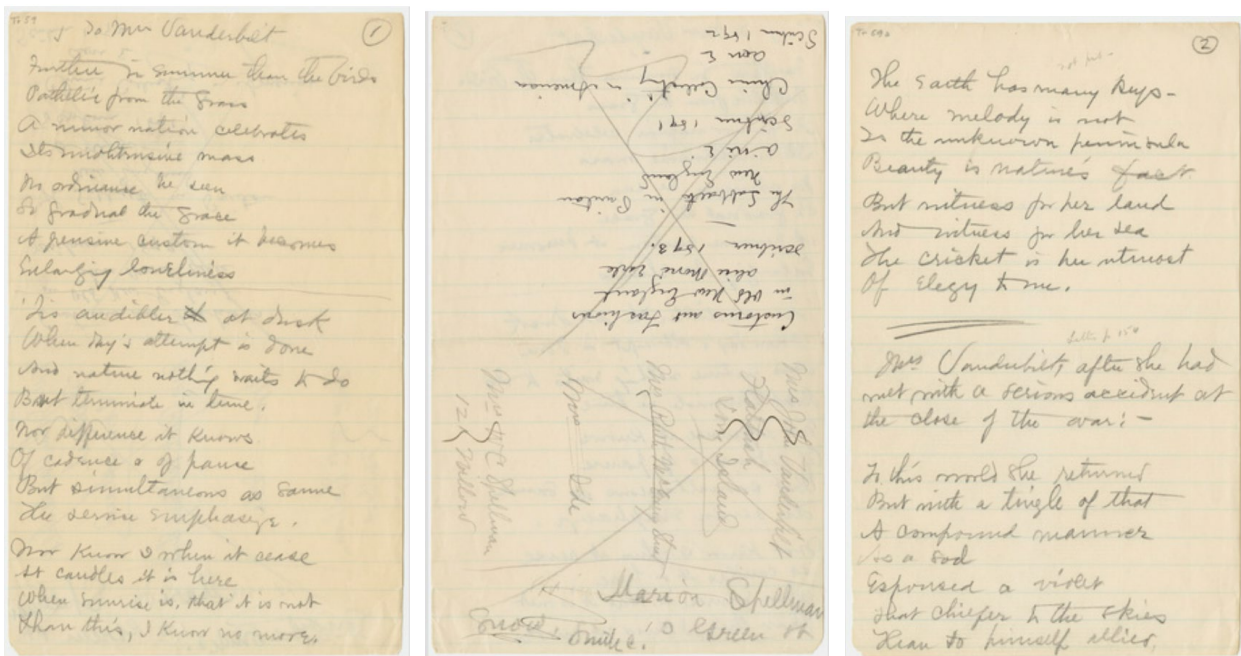 To Mrs Vanderbilt
1
Further in summer than the birds
Pathetic from the Grass
A minor nation celebrates
Its unobtrusive mass
No ordinance be seen
So gradual the Grace
A pensive custom it becomes
Enlarging loneliness
'Tis audibler at dusk
When day's attempt is done
And nature nothing waits to do
But terminate in tune.
Nor difference it knows
Of cadence or of pause
But simultaneous as same
The service emphasize.
Nor know I when it cease
At candles it is here
When sunrise is, that it is not
Than this, I know no more.
Customs and Fashions
in Old New England
Alice Morse Earle
Scribner 1893.
The Sabbath in Puritan
New England
Scribner 1891
China Collecting in America
Scribner 1892
Mrs John Vanderbilt
Flatbush
Long Island
Mrs
Mrs W C Spellman
12
Marion Spellman
10 Green St
2
The Earth has many keys -
Where melody is not
Is the unknown peninsula
Beauty is nature's fact
But witness for her land
And witness for her sea
The cricket is her utmost
Of Elegy to me.
Mrs Vanderbilt, after she had
met with a serious accident at
the close of the war: -
To this world she returned
But with a tingle of that
A compound manner
As a sod
Espoused a violet
That chiefer to the skies
Than to himself allied,